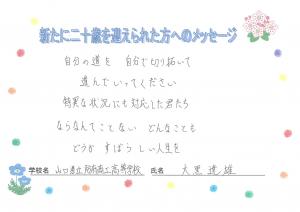 新たに二十歳を迎えられた方へのメッセージ
自分の道を 自分で切り拓いて
進んでいってください
特異な状況にも対応した君たち
ならなんてことない どんなことも
どうか すばらしい人生を
学校名 山口県立 商工高等学校 氏名 大黒 達雄